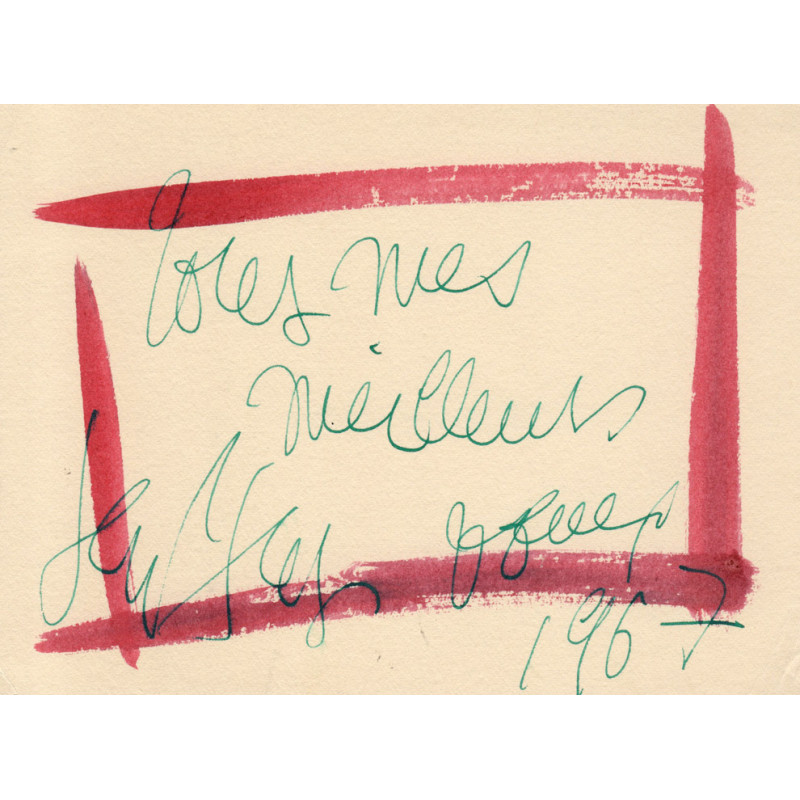 Tous mes
meilleurs
voeux
1967